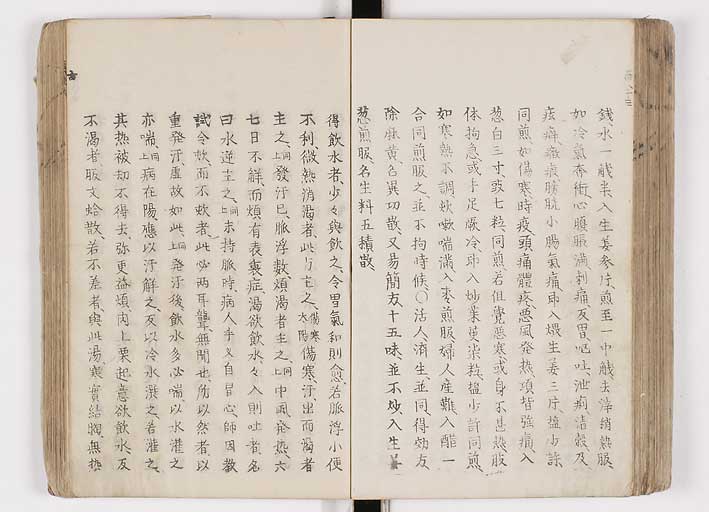 錢水一盞半入生姜叁片煎至一中盞去滓稍熱服
如冷氣奔衝心胷脹滿刺痛反胃嘔吐泄痢清穀及
痃癖癥瘕膀胱小腸氣痛即入煨生姜三片塩少許
同煎如傷寒時疫頭痛體疼惡風發熱項背強痛入
葱白三寸豉七粒同煎若但覺惡寒或身不甚熱肢
体拘急或手足厥冷即入炒茱萸七粒塩少許同煎
如寒熱不調欬嗽喘滿入棗煎服婦人産難入醋一
合同煎服之並不拘時候○活人濟生並同得効方
除麻黃名異功散又易簡方十五味並不炒入生姜
葱煎服名生料五積散
得飲水者少々與飲之令胃氣和則愈若脈浮小便
不利微熱消渴者此方主之傷寒太陽傷寒汗出而渴者
主之上同發汗已脈浮數煩渴者主之上同中風發熱六
七日不解而煩有表裏症渴欲飲水々入則吐者名
曰水逆主之上同未持脈時病人手叉自冒心師因教
試令欬而不欬者此必兩耳聾無聞也所以然者以
重發汗虛故如此上同發汗後飲水多必喘以水灌之
亦喘上同病在陽應以汗解之反以冷水潠之若灌之
其熱被却不得去弥更益煩肉上粟起意欲飲水反
不渴者服文蛤散若不差者與此湯寒實結胸無熱